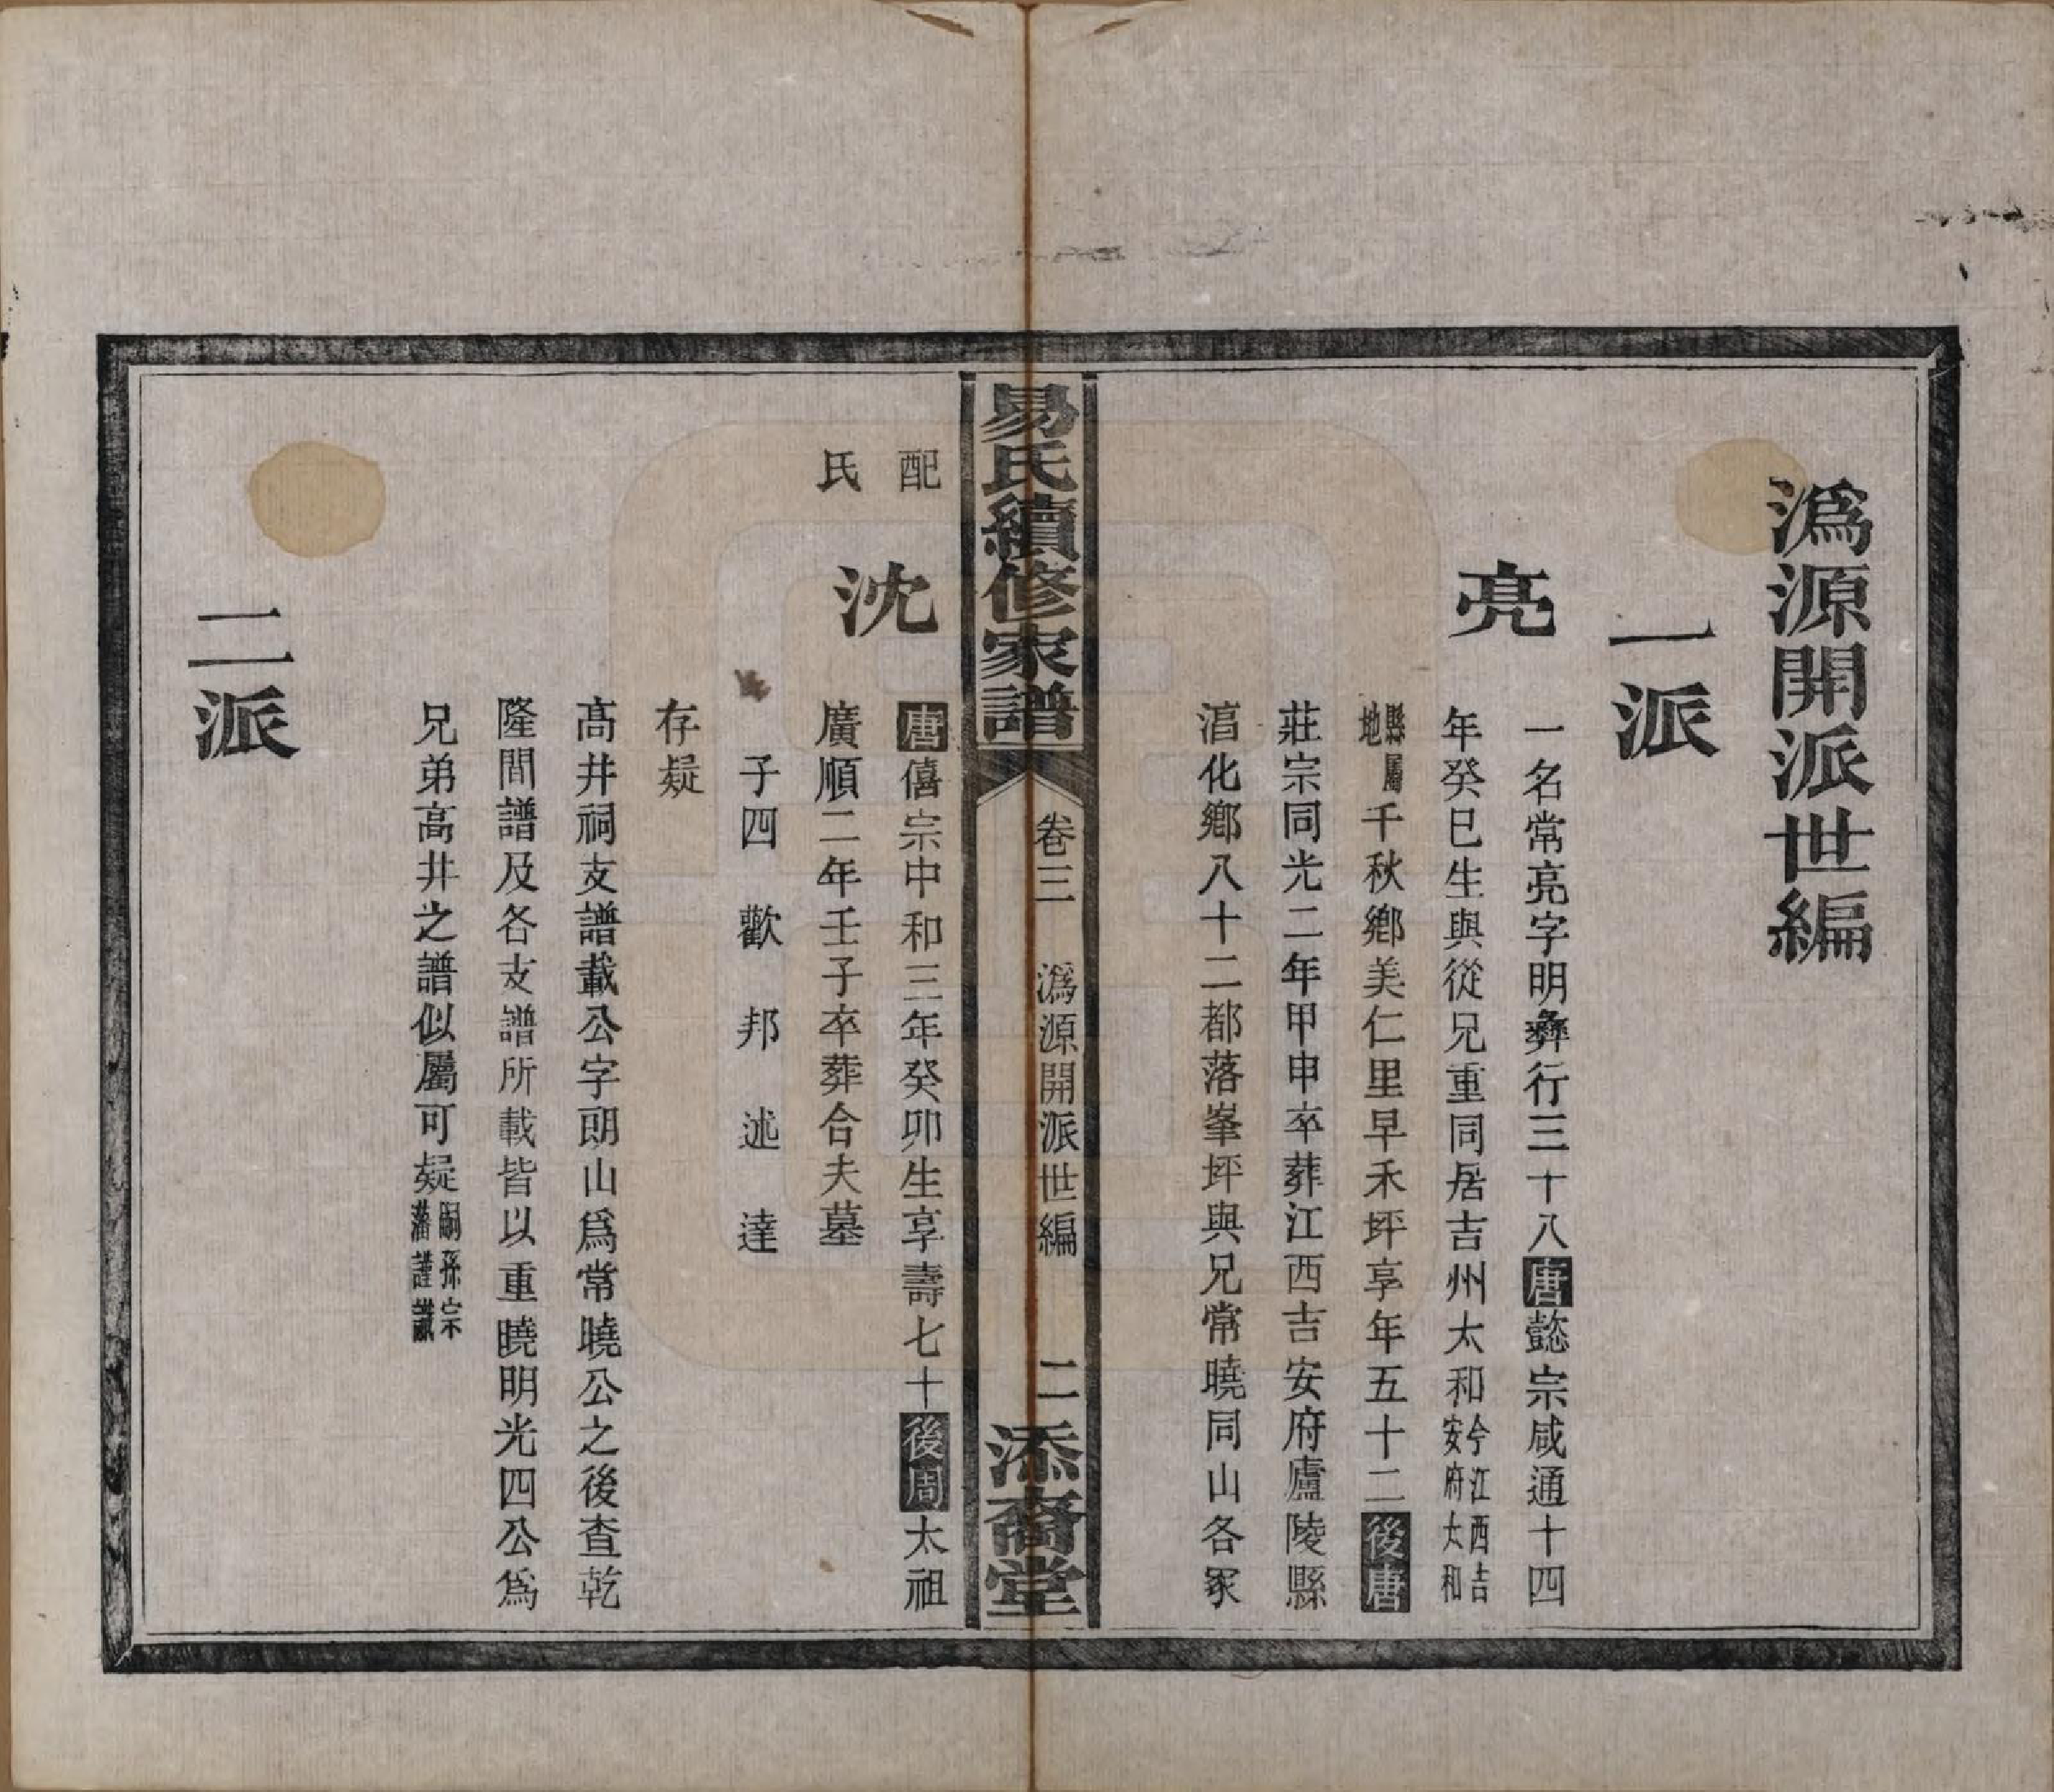 溈源開派世編
一派
亮
一名常亮字明彝行三十八唐懿宗咸通十四
年癸巳生與從兄重同居吉州太和今江西吉安府太和
縣屬地千秋鄉美仁里早禾坪享年五十二後唐
莊宗同光二年甲申卒葬江西吉安府廬陵縣
淯化鄉八十二都落峯坪與兄常曉同山各冢
易氏續修家譜
卷三 溈源開派世編 二
添裔堂
配氏
沈
唐僖宗中和三年癸卯生享壽七十後周太祖
廣順二年壬子卒葬合夫墓
子四 歡 邦 述 達
存疑
高井祠支譜載公字朗山爲常曉公之後查乾
隆間譜及各支譜所載皆以重曉明光四公爲
兄弟高井之譜似屬可疑嗣孫宗藩謹識
二派